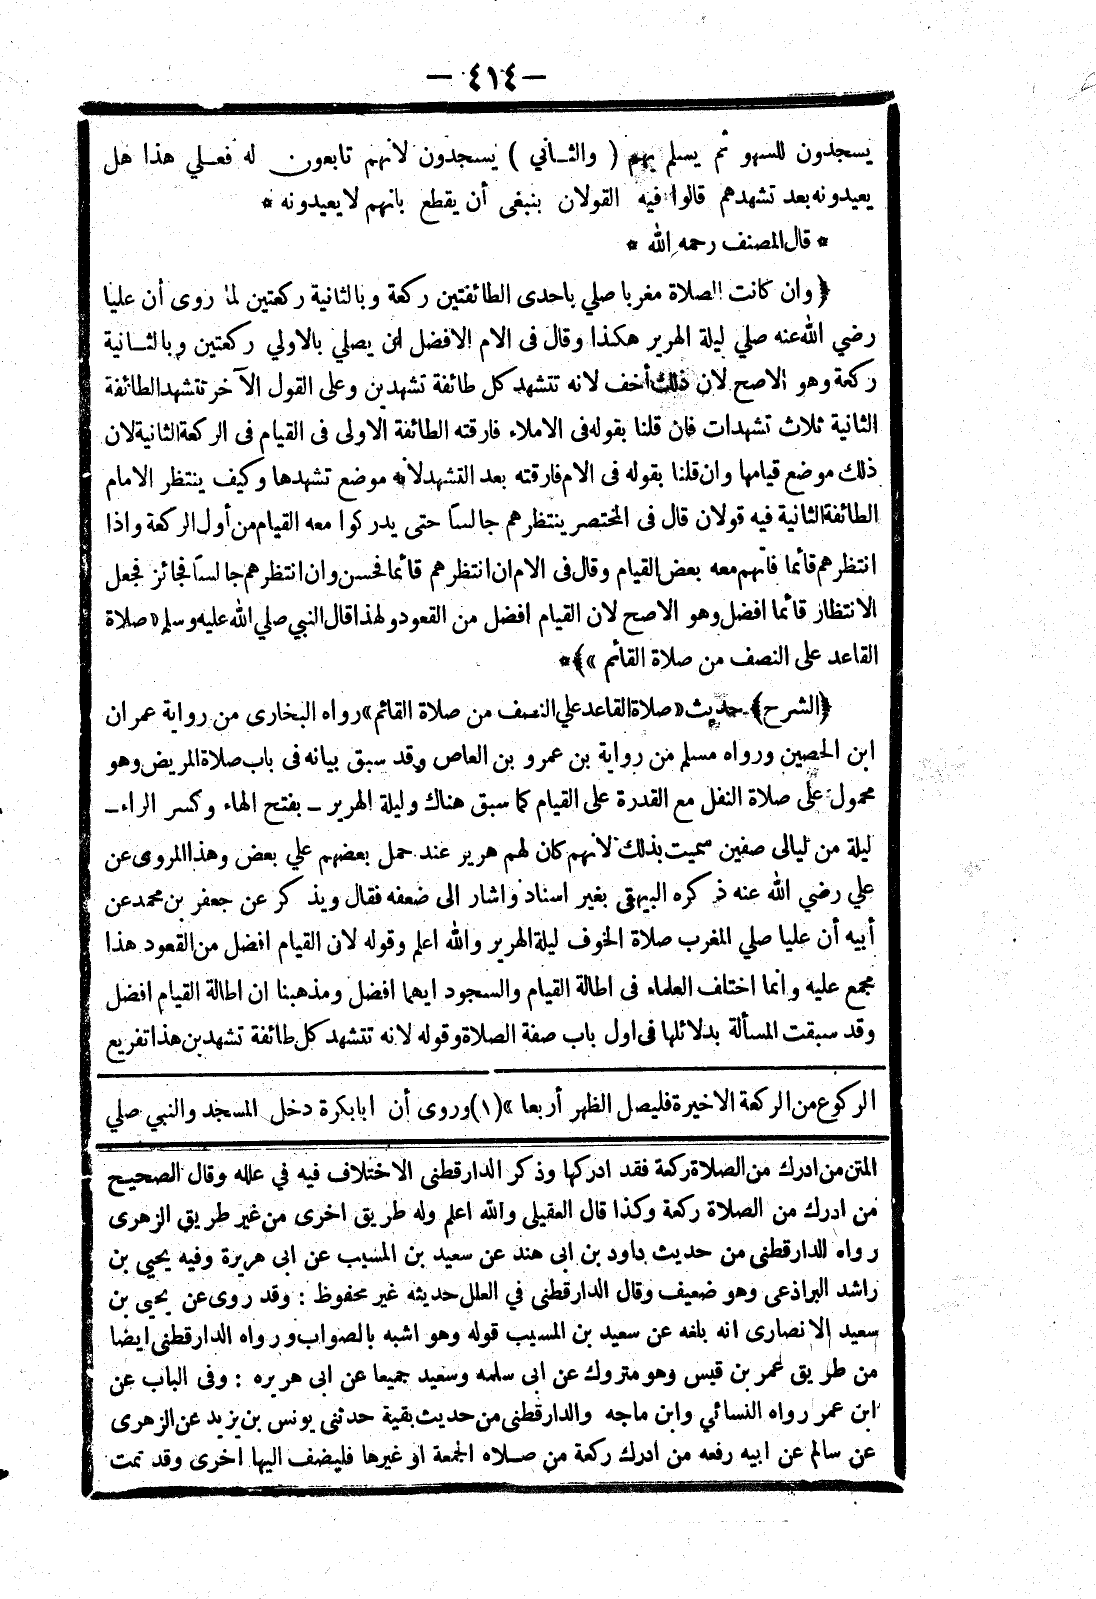 — ٤١٤ —
يسجدون للسهو ثم يسلم بهم ( والثـاني ) يسجدون لأنهم تابعون له فعلي هذا هل
يعيدونه بعد تشهدهم قالوا فيه القولان ينبغى أن يقطع بانهم لا يعيدونه *
* قال المصنف رحمه الله *
﴿ وان كانت الصلاة مغربا صلي باحدى الطائفتين ركعة وبالثانية ركعتين لما روى أن عليا
رضي الله عنه صلي ليلة الهرير هكذا وقال فى الام الافضل ان يصلي بالاولي ركعتين وبالثـانية
ركعة وهو الاصح لان ذلك أخف لانه تتشهد كل طائفة تشهدين وعلى القول الآخر تتشهد الطائفة
الثانية ثلاث تشهدات فان قلنا بقوله فى الاملاء فارقته الطائفة الاولى فى القيام فى الركعة الثانية لان
ذلك موضع قيامها وان قلنا بقوله فى الام فارقته بعد التشهد لانه موضع تشهدها وكيف ينتظر الامام
الطائفة الثانية فيه قولان قال فى المختصر ينتظرهم جالسا حتى يدركوا معه القيام من أول الركعة واذا
انتظرهم قائما فاتهم معه بعض القيام وقال فى الام ان انتظرهم قائما فحسن وان انتظرهم جالسا فجائز فجعل
الانتظار قائما افضل وهو الاصح لان القيام افضل من القعود ولهذا قال النبي صلي الله عليه وسلم « صلاة
القاعد على النصف من صلاة القائم »﴾*
﴿الشرح﴾ حديث « صلاة القاعد علي النصف من صلاة القائم» رواه البخارى من رواية عمران
ابن الحصين ورواه مسلم من رواية بن عمرو بن العاص وقد سبق بيانه فى باب صلاة المريض وهو
محمول على صلاة النفل مع القدرة على القيام كما سبق هناك وليلة الهرير – بفتح الهاء وكسر الراء –
ليلة من ليالى صفين سميت بذلك لانهم كان لهم هرير عند حمل بعضهم علي بعض وهذا المروى عن
علي رضي الله عنه ذكره البيهقى بغير اسناد واشار الى ضعفه فقال ويذكر عن جعفر بن محمد عن
أبيه أن عليا صلي المغرب صلاة الخوف ليلة الهرير والله اعلم وقوله لان القيام افضل من القعود هذا
مجمع عليه وانما اختلف العلماء فى اطالة القيام والسجود ايهما افضل ومذهبنا ان اطالة القيام افضل
وقد سبقت المسألة بدلائلها فى اول باب صفة الصلاة وقوله لانه تتشهد كل طائفة تشهدين هذا تفريع
الركوع من الركعة الاخيرة فليصل الظهر أربعا »(١) وروى أن ابا بكرة دخل المسجد والنبي صلي
المتن من ادرك من الصلاة ركعة فقد ادركها وذكر الدارقطنى الاختلاف فيه في علله وقال الصحيح
من ادرك من الصلاة ركعة وكذا قال العقيلى والله اعلم وله طريق اخرى من غير طريق الزهرى
رواه الدارقطنى من حديث داود بن ابى هند عن سعيد بن المسيب عن ابى هريرة وفيه يحيي بن
راشد البراذعى وهو ضعيف وقال الدارقطنى في العلل حديثه غير محفوظ : وقد روى عن يحيى بن
سعيد الانصارى انه بلغه عن سعيد بن المسيب قوله وهو اشبه بالصواب ورواه الدارقطنى ايضا
من طريق عمر بن قيس وهو متروك عن ابى سلمه وسعيد جميعا عن ابى هريره : وفى الباب عن
ابن عمر رواه النسائي وابن ماجه والدارقطنى من حديث بقية حدثنى يونس بن يزيد عن الزهرى
عن سالم عن ابيه رفعه من ادرك ركعة من صـلاه الجمعة او غيرها فليضف اليها اخرى وقد تمت